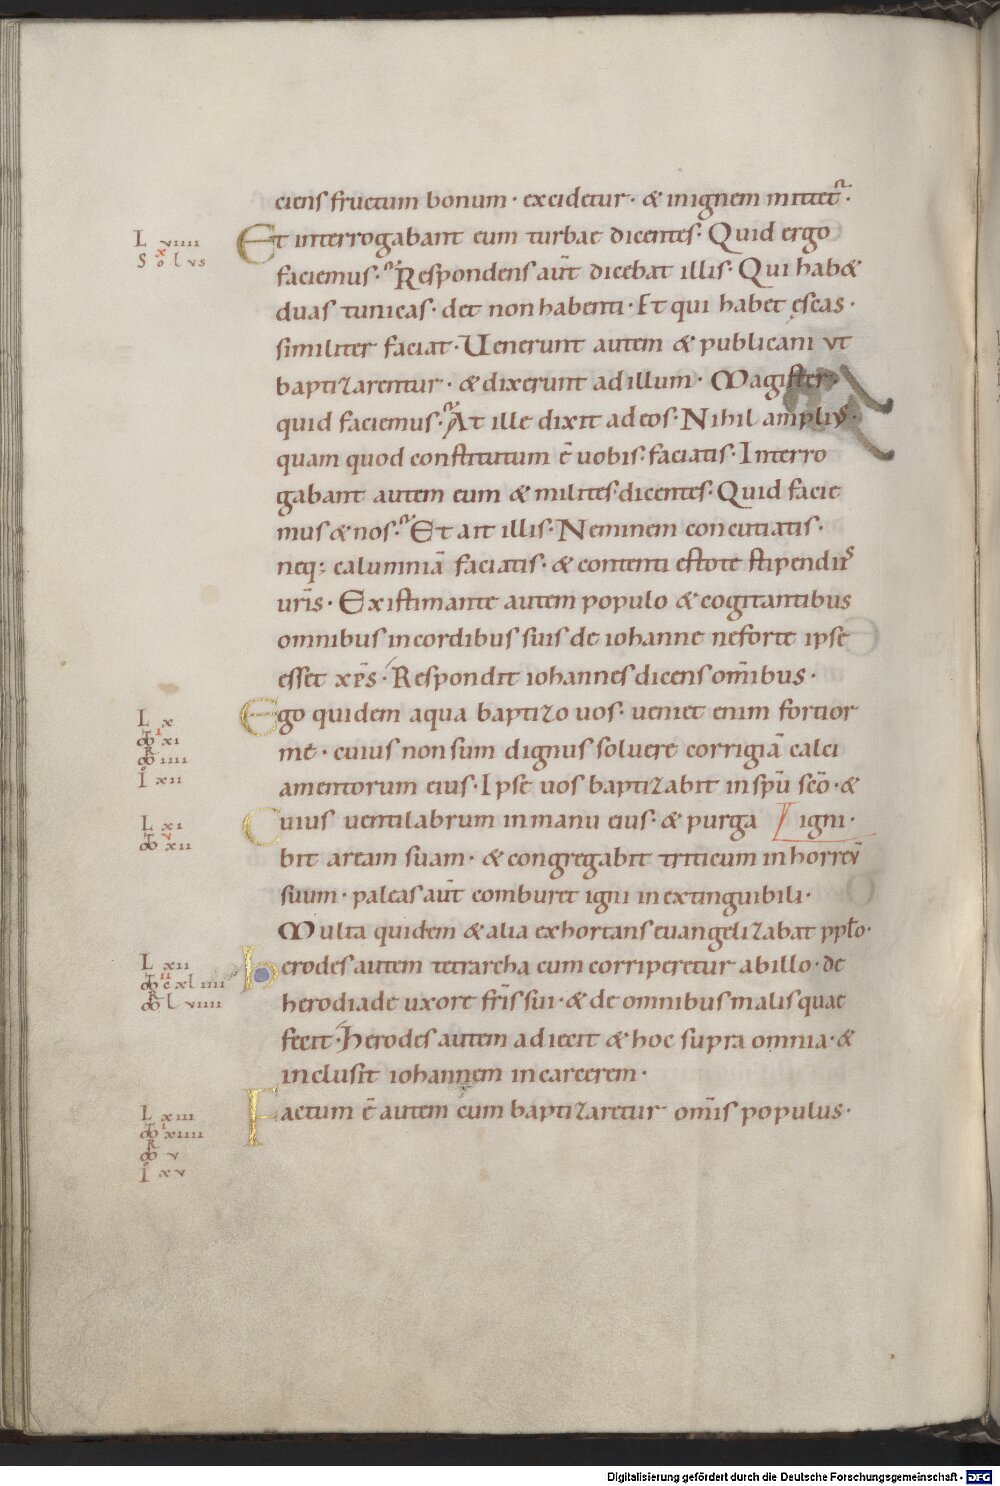 ciens fructum bonum · excidetur · & in ignem mittet᷑ ·
L viiii
S x o l v s
Et interrogabant eum turbae dicentes · Quid ergo
faciemus · Respondens aut̄ dicebat illis · Qui hab&
duas tunicas · det non habenti · Et qui habet escas ·
similiter faciat · Uenerunt autem & publicani vt
baptizarentur · & dixerunt ad illum · Magister ·
quid faciemus · At ille dixit ad eos · Nihil amplius ·
quam quod constitutum ē uobis · faciatis · Interro
gabant autem eum & milites · dicentes · Quid facie
mus & nos · Et ait illis · Neminem concutiatis ·
neq: calumniā faciatis · & contenti estote stipendiis
ur̄is · Existimante autem populo & cogitantibus
omnibus in cordibus suis de iohanne ne forte ipse
esset xp̄s · Respondit iohannes dicens om̄ibus ·
L x
i xi
iiii
I xii
Ego quidem aqua baptizo uos · ueniet enim fortior
me · cuius non sum dignus soluere corrigiā calci
amentorum eius · Ipse uos baptizabit in sp̄u sc̄o · &
L xi
v xii
Cuius uentilabrum in manu eius · & purga igni ·
bit aream suam · & congregabit triticum in horreū
suum · paleas aut̄ comburet igni inextinguibili ·
Multa quidem & alia exhortans euangelizabat pplo ·
L xii
ii c xl iiii
l viiii
herodes autem tetrarcha cum corriperetur ab illo · de
herodiade uxore fr̄is sui · & de omnibus malis quae
fecit · Herodes autem adiecit & hoc supra omnia · &
inclusit iohannem in carcerem ·
L xiii
i xiiii
v
I xv
Factum ē autem cum baptizaretur om̄is populus ·
Digitalisierung gefördert durch die Deutsche Forschungsgemeinschaft - DFG